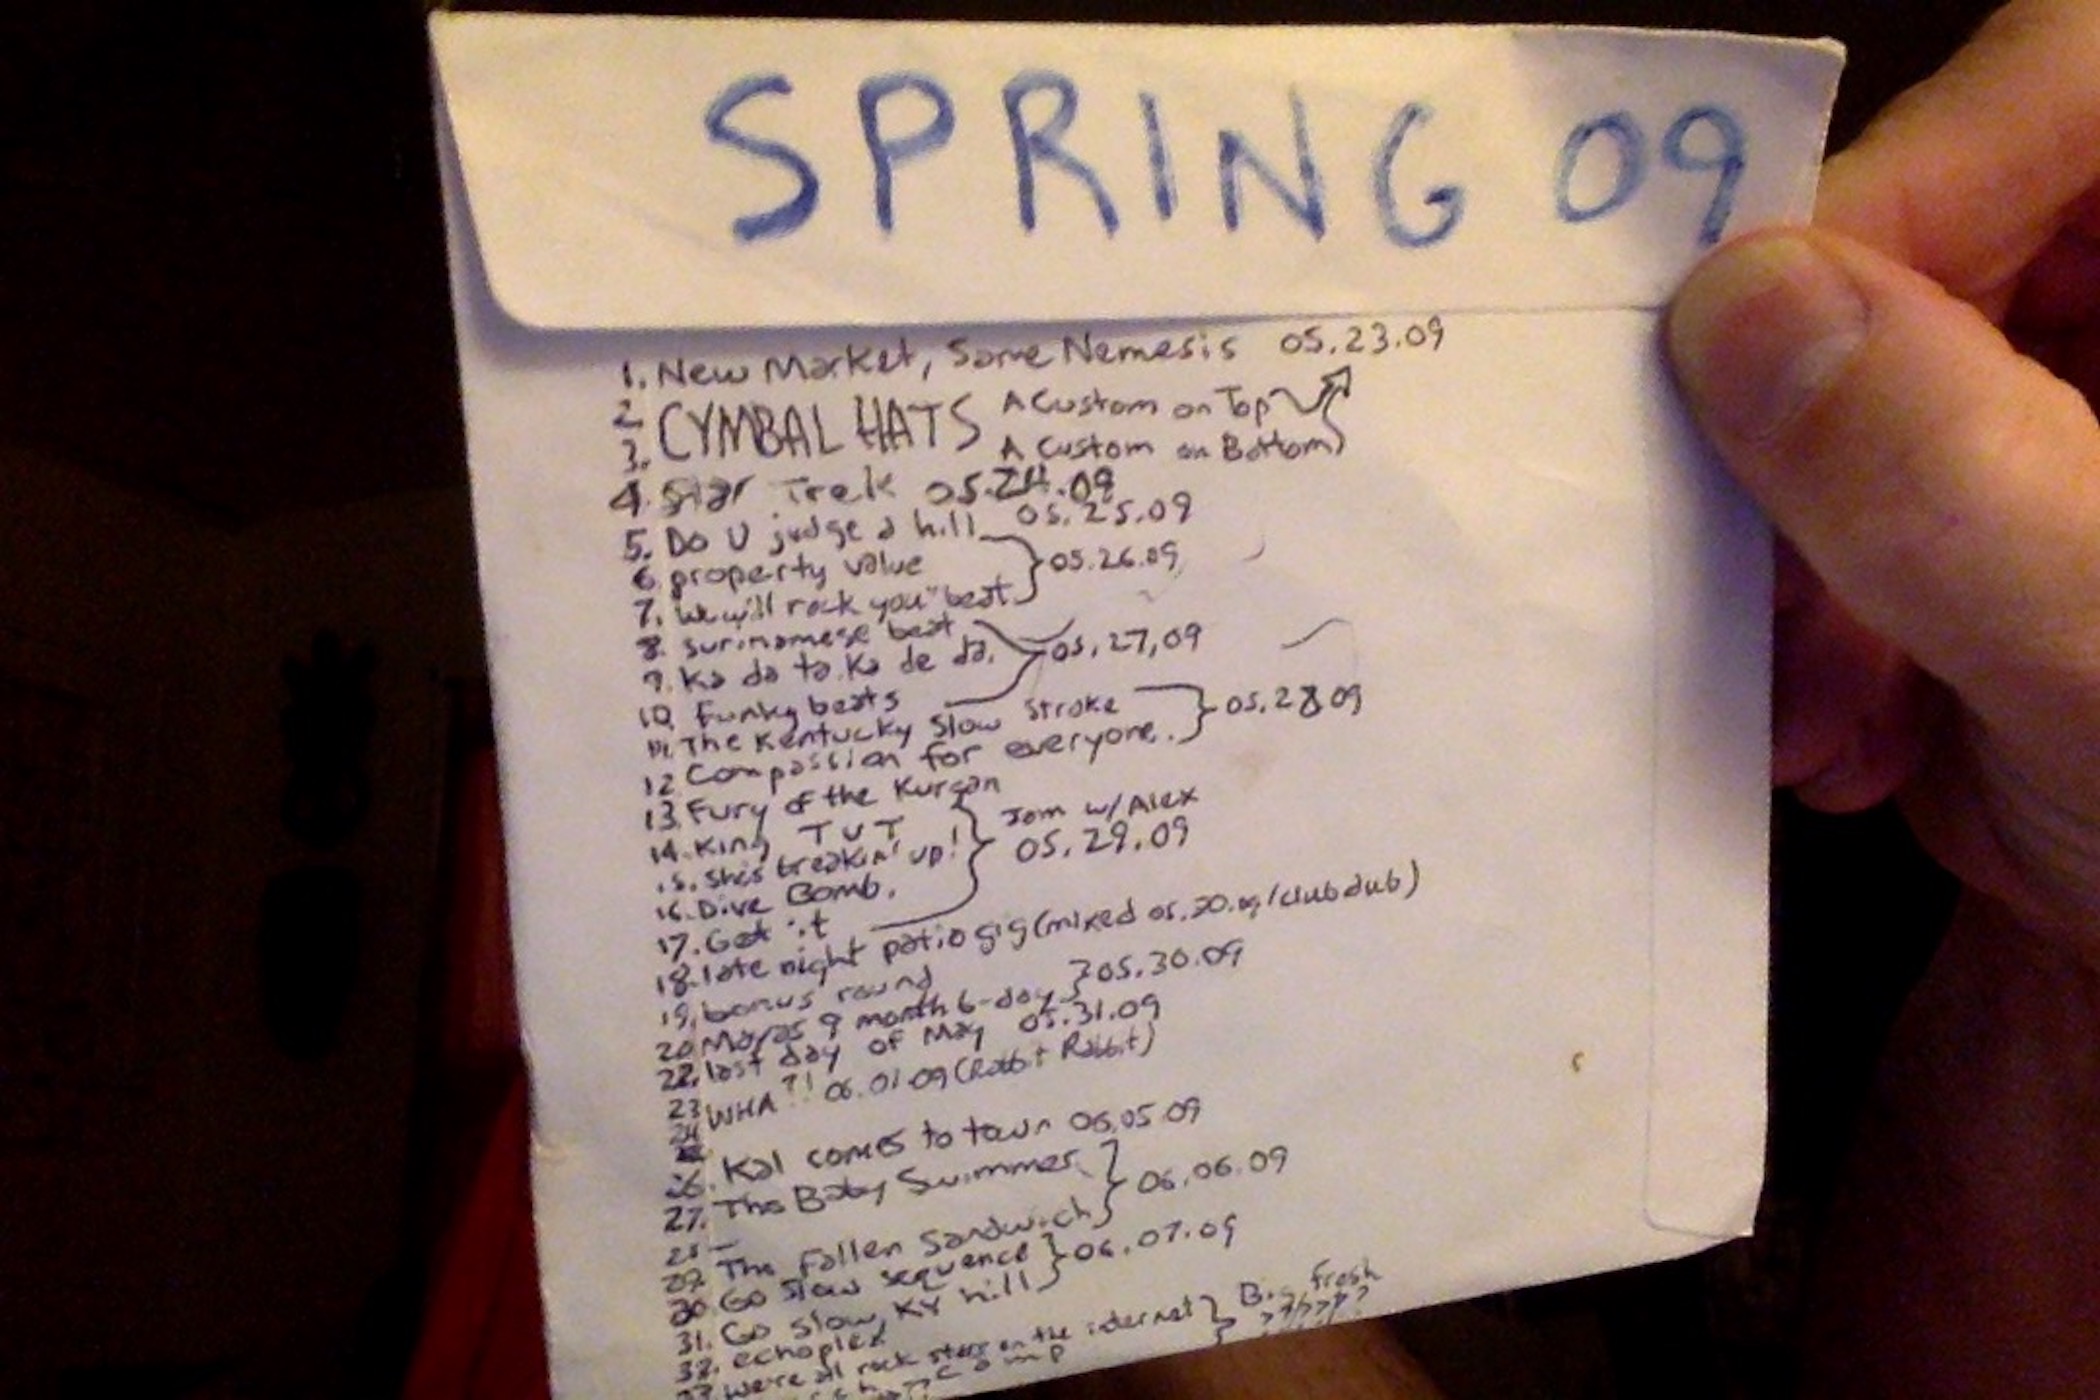 SPRING 09
1. New Market, Same Nemesis 05.23.09
2. CYMBAL HATS A Custom on Top
3. A Custom on Bottom
4. Star Trek 05.24.09
5. Do U judge a hill 05.25.09
6. property value 05.26.09
7. We will rock you" beat
8. surinamese beat
9. Ka da ta Ka de da. 05,27,09
10. funky beats
11. The Kentucky Slow Stroke 05.28 09
12 Compassion for everyone.
13. Fury of the Kurgan
14. King TUT Jam w/Alex
15. She's breakin' up! 05.29.09
16. Dive Bomb.
17. Get it
18. late night patio gig (mixed 05.30.09/clubdub)
19. bonus round
20 Maras 9 month 6-day 05.30.09
22. last day of May 05.31.09
23 WHA?! 06.01.09 (Rabbit Rabbit)
24
26. Kal comes to town 06.05.09
27. The Baby Swimmer 06.06.09
28 -
29. The Fallen Sandwich
30. Go Slow sequence 06.07.09
31. Go slow, KY hill
32. echoplex
33 we're all rock stars on the internet Big fresh
comp